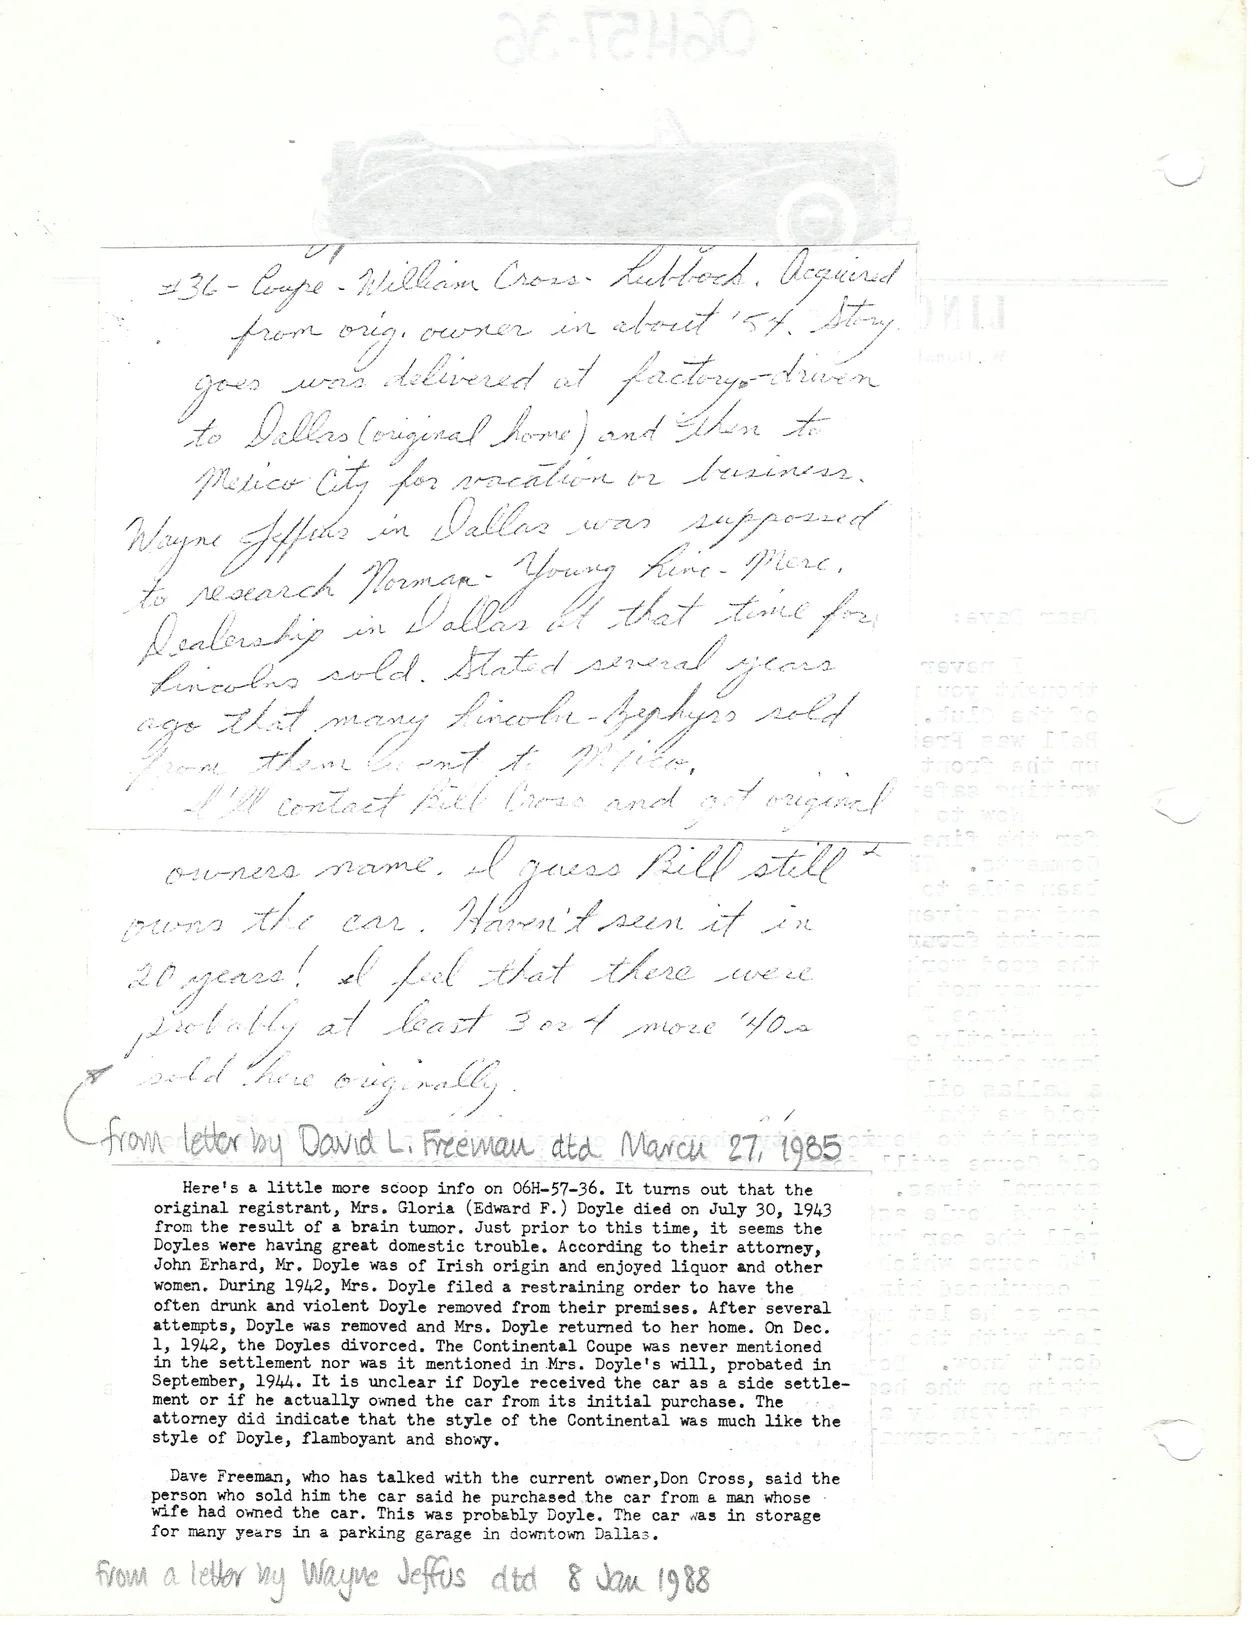 06H57-36
#36 - Coupe - William Cross - Lubbock. Acquired
from orig. owner in about '54. Story
goes was delivered at factory - driven
to Dallas (original home) and then to
Mexico City for vacation or business.
Wayne Jeffus in Dallas was suppossed
to research Norman - Young Linc - Merc.
Dealership in Dallas at that time for
Lincolns sold. Stated several years
ago that many Lincoln-Zephyrs sold
from them went to Mexico.
I'll contact Bill Cross and get original
owners name. I guess Bill still
owns the car. Haven't seen it in
20 years! I feel that there were
probably at least 3 or 4 more '40s
sold here originally.
from letter by David L. Freeman dtd March 27, 1985
Here's a little more scoop info on 06H-57-36. It turns out that the
original registrant, Mrs. Gloria (Edward F.) Doyle died on July 30, 1943
from the result of a brain tumor. Just prior to this time, it seems the
Doyles were having great domestic trouble. According to their attorney,
John Erhard, Mr. Doyle was of Irish origin and enjoyed liquor and other
women. During 1942, Mrs. Doyle filed a restraining order to have the
often drunk and violent Doyle removed from their premises. After several
attempts, Doyle was removed and Mrs. Doyle returned to her home. On Dec.
1, 1942, the Doyles divorced. The Continental Coupe was never mentioned
in the settlement nor was it mentioned in Mrs. Doyle's will, probated in
September, 1944. It is unclear if Doyle received the car as a side settle-
ment or if he actually owned the car from its initial purchase. The
attorney did indicate that the style of the Continental was much like the
style of Doyle, flamboyant and showy.
Dave Freeman, who has talked with the current owner,Don Cross, said the
person who sold him the car said he purchased the car from a man whose
wife had owned the car. This was probably Doyle. The car was in storage
for many years in a parking garage in downtown Dallas.
from a letter by Wayne Jeffus dtd 8 Jan 1988